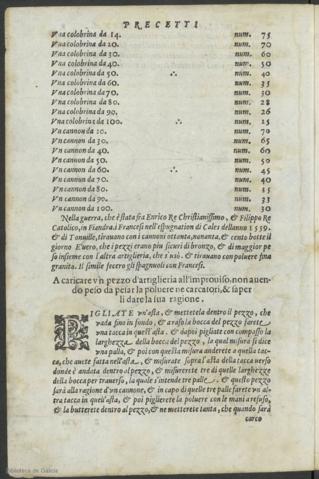 PRECETTI
Vna colobrina da 14. num. 75
Vna colobrina da 20. num. 70
Vna colobrina da 30. num. 60
Vna colobrina da 40. num. 50
Vna colobrina da 50. num. 40
Vna colobrina da 60. num. 35
Vna colobrina da 70. num. 30
Vna colobrina da 80. num. 28
Vna colobrina da 90. num. 26
Vna colobrina da 100. num. 15
Vn cannon da 20. num. 70
Vn cannon da 30. num. 65
Vn cannon da 40. num. 60
Vn cannon da 50. num. 50
Vn cannon da 60. num. 45
Vn cannon da 70. num. 40
Vn cannon da 80. num. 15
Vn cannon da 90. num. 33
Vn cannon da 100. num. 30
Nella guerra, che è stata fra Enrico Re Christianissimo, & Filippo Re
Catolico, in Fiandra à Francesi nell'espugnation di Cales dell'anno 1559.
& di Tonuille, tirauano con i cannoni ottanta, nonanta, & cento botte il
giorno E'uero, che i pezzi erano piu sicuri di bronzo, & di maggior pe
so insieme con l'altra artiglieria, che s'usò. & tirauano con poluere fina
granita. Il simile fecero gli spagnuoli con Francesi.
A caricare vn pezzo d'artiglieria all'improuiso. non auen-
do peso da pesar la poluere ne carcatori, & saper
li dare la sua ragione.
PIGLIATE vn'asta, & mettetela dentro il pezzo, che
vada sino in fondo, & a raso la bocca del pezzo farete
vna tacca in quell'asta. & dapoi pigliate con compasso la
larghezza della bocca del pezzo, la qual misura si dice
vna palla, & poi con questa misura anderete a quella tac-
ca, che auete fatta nell'asta, & misurate sopra l'asta della tacca verso
donde è andata dentro al pezzo, & misurerete tre di quelle larghezze
della bocca per trauerso, la quale s'intende tre palle. & questo pezzo
sarà alla ragione d'vn cannone, & in capo di quelle tre palle farete vn al-
tra tacca in quell'asta, & poi piglierete la poluere con le mani a refuso,
& la butterete dentro al pezzo, & ne metterete tanta, che quando sarà
carco
Biblioteca de Galicia